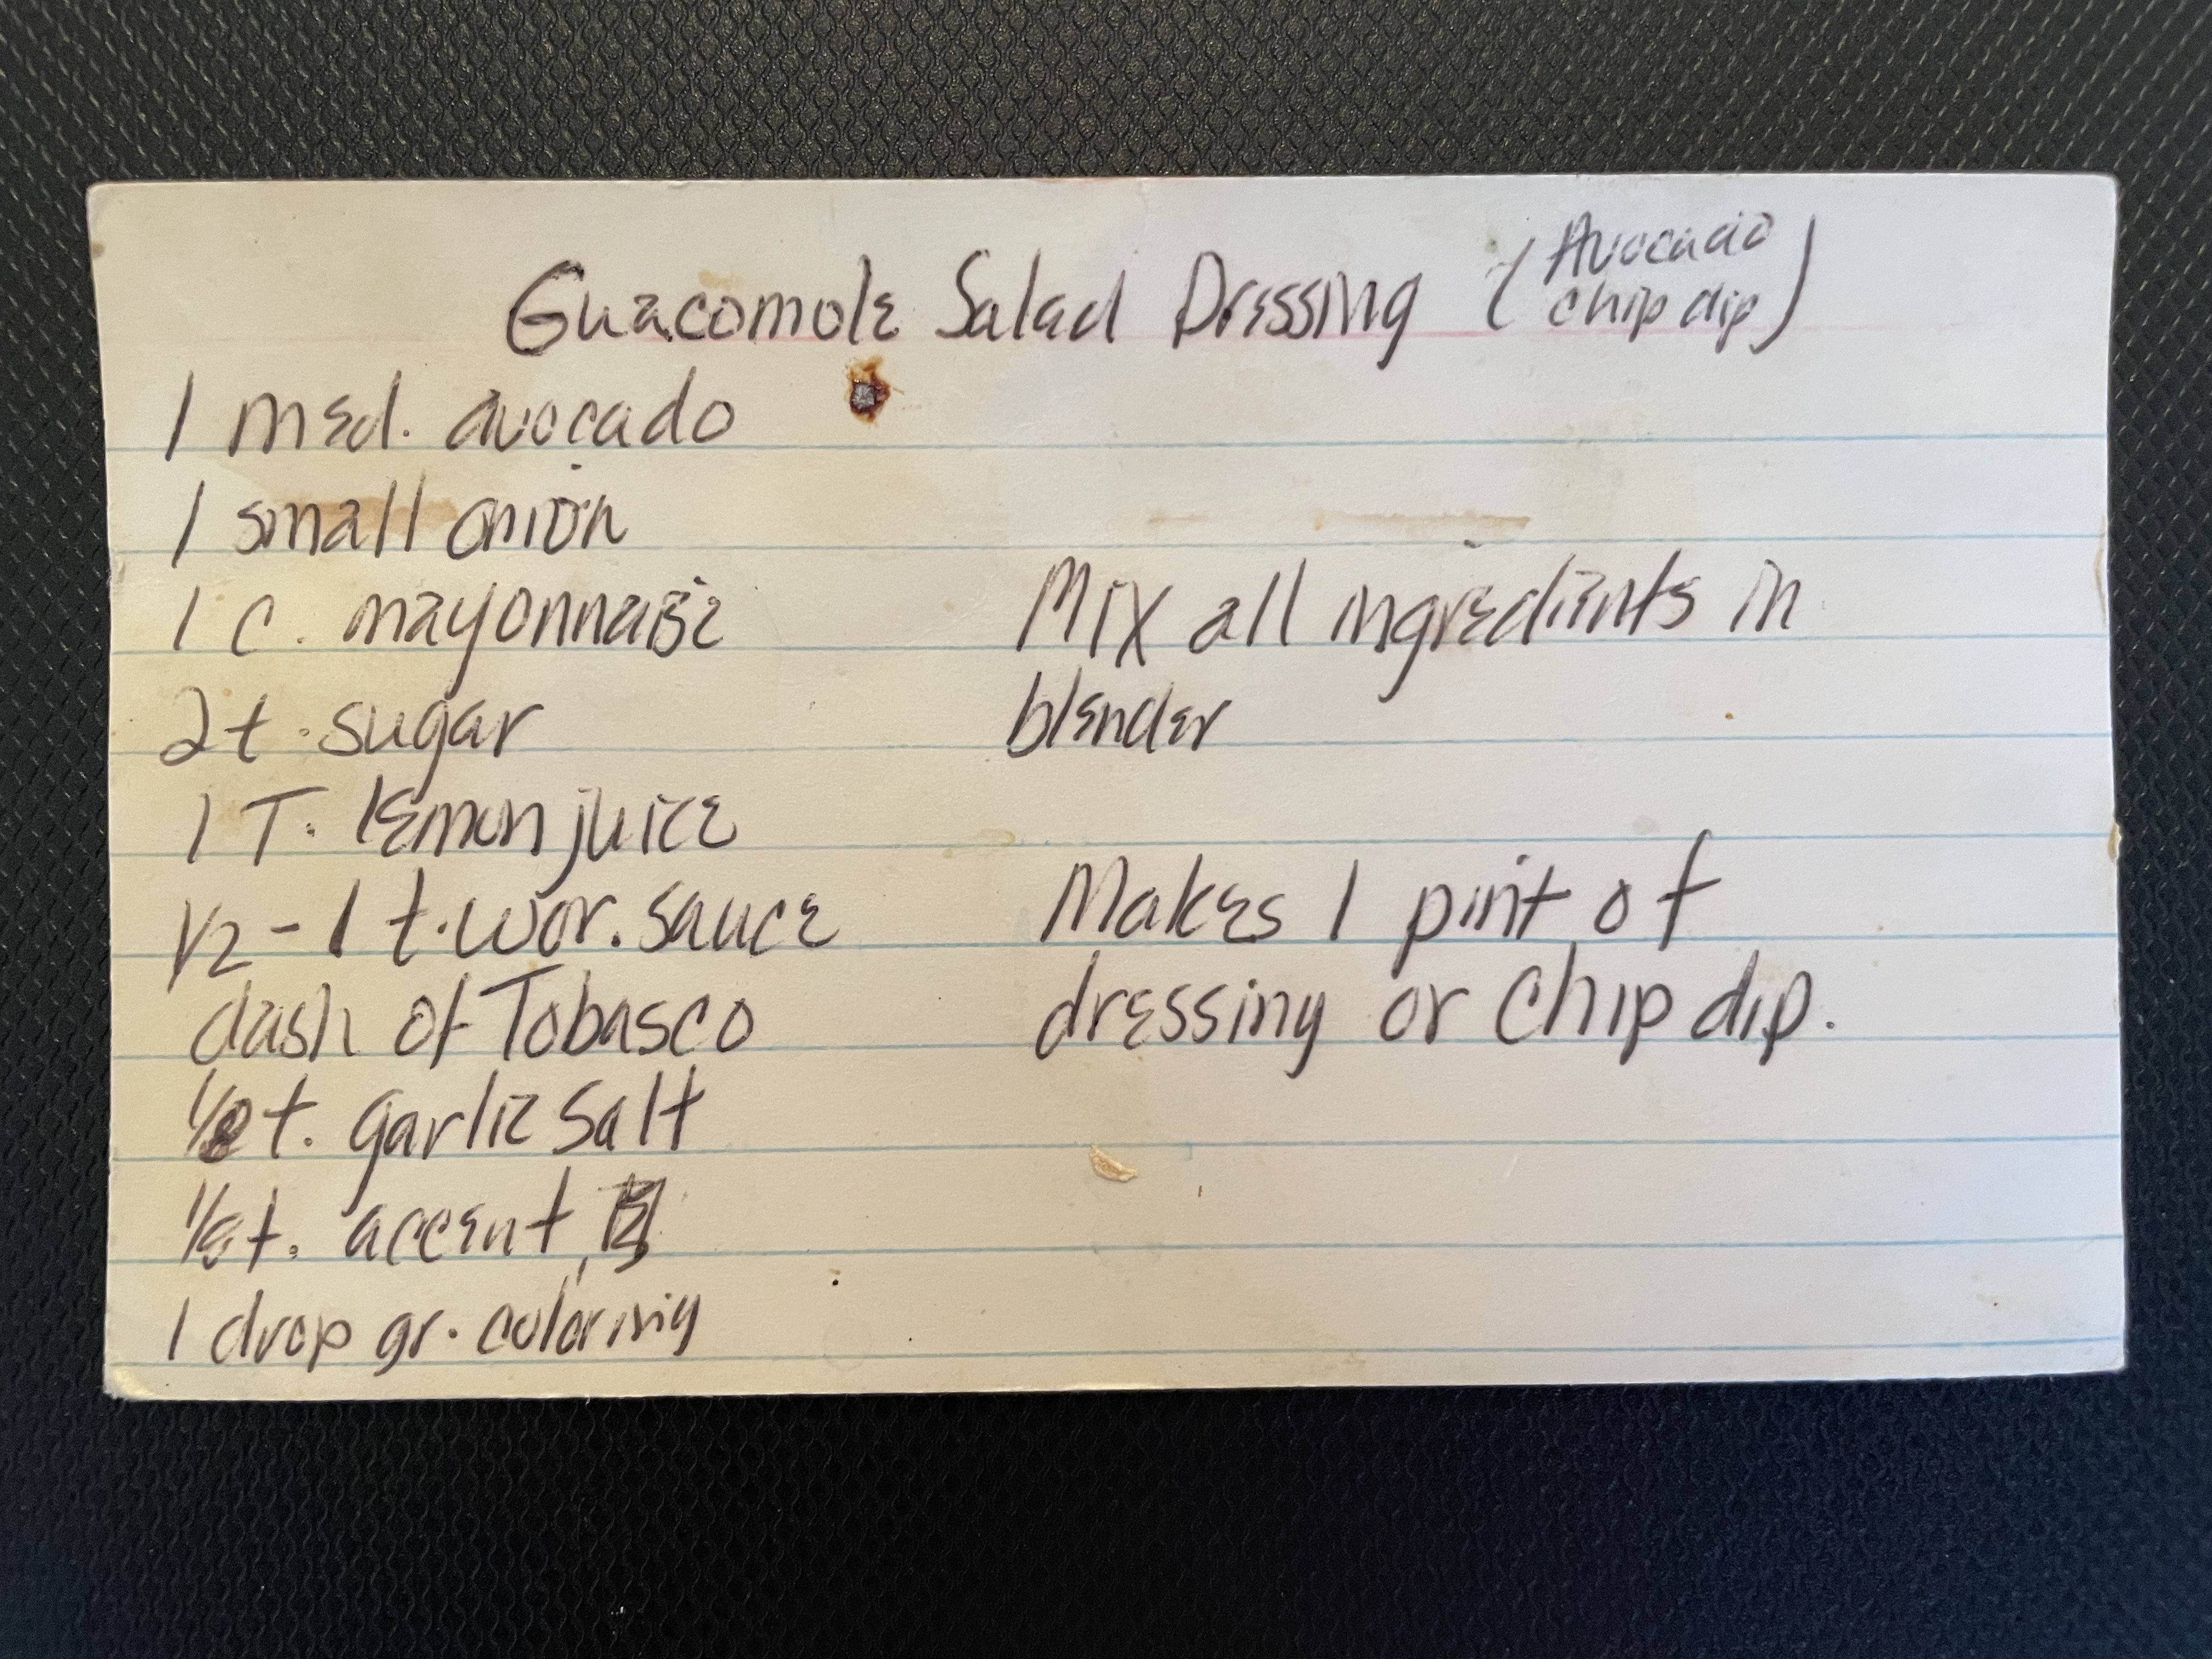 Guacomole Salad Dressing (Avocado chip dip)
1 med. avocado
1 small onion
1 c. mayonnaise
2 t. sugar
1 T. lemon juice
1/2 - 1 t. wor. sauce
dash of Tobasco
1/8 t. garlic salt
1/8 t. accent,
1 drop gr. coloring
Mix all ingredients in
blender
Makes 1 pint of
dressing or chip dip.